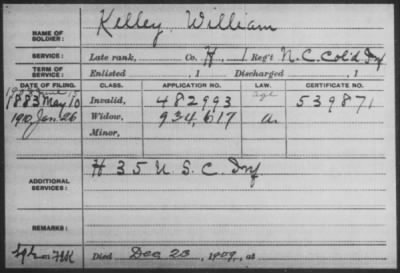 NAME OF SOLDIER: Kelley, William
SERVICE: Late rank, Co. H, 1 Reg't N.C. Col'd Inf
TERM OF SERVICE: Enlisted , 1 Discharged , 1
DATE OF FILING. CLASS. APPLICATION NO. LAW. CERTIFICATE NO.
1883 May 10 Invalid, 482993 age 539871
190 Jan. 26 Widow, 934,617
Minor,
ADDITIONAL SERVICES: H 35 U. S. C. Inf
REMARKS:
Died Dec 23, 1909, at